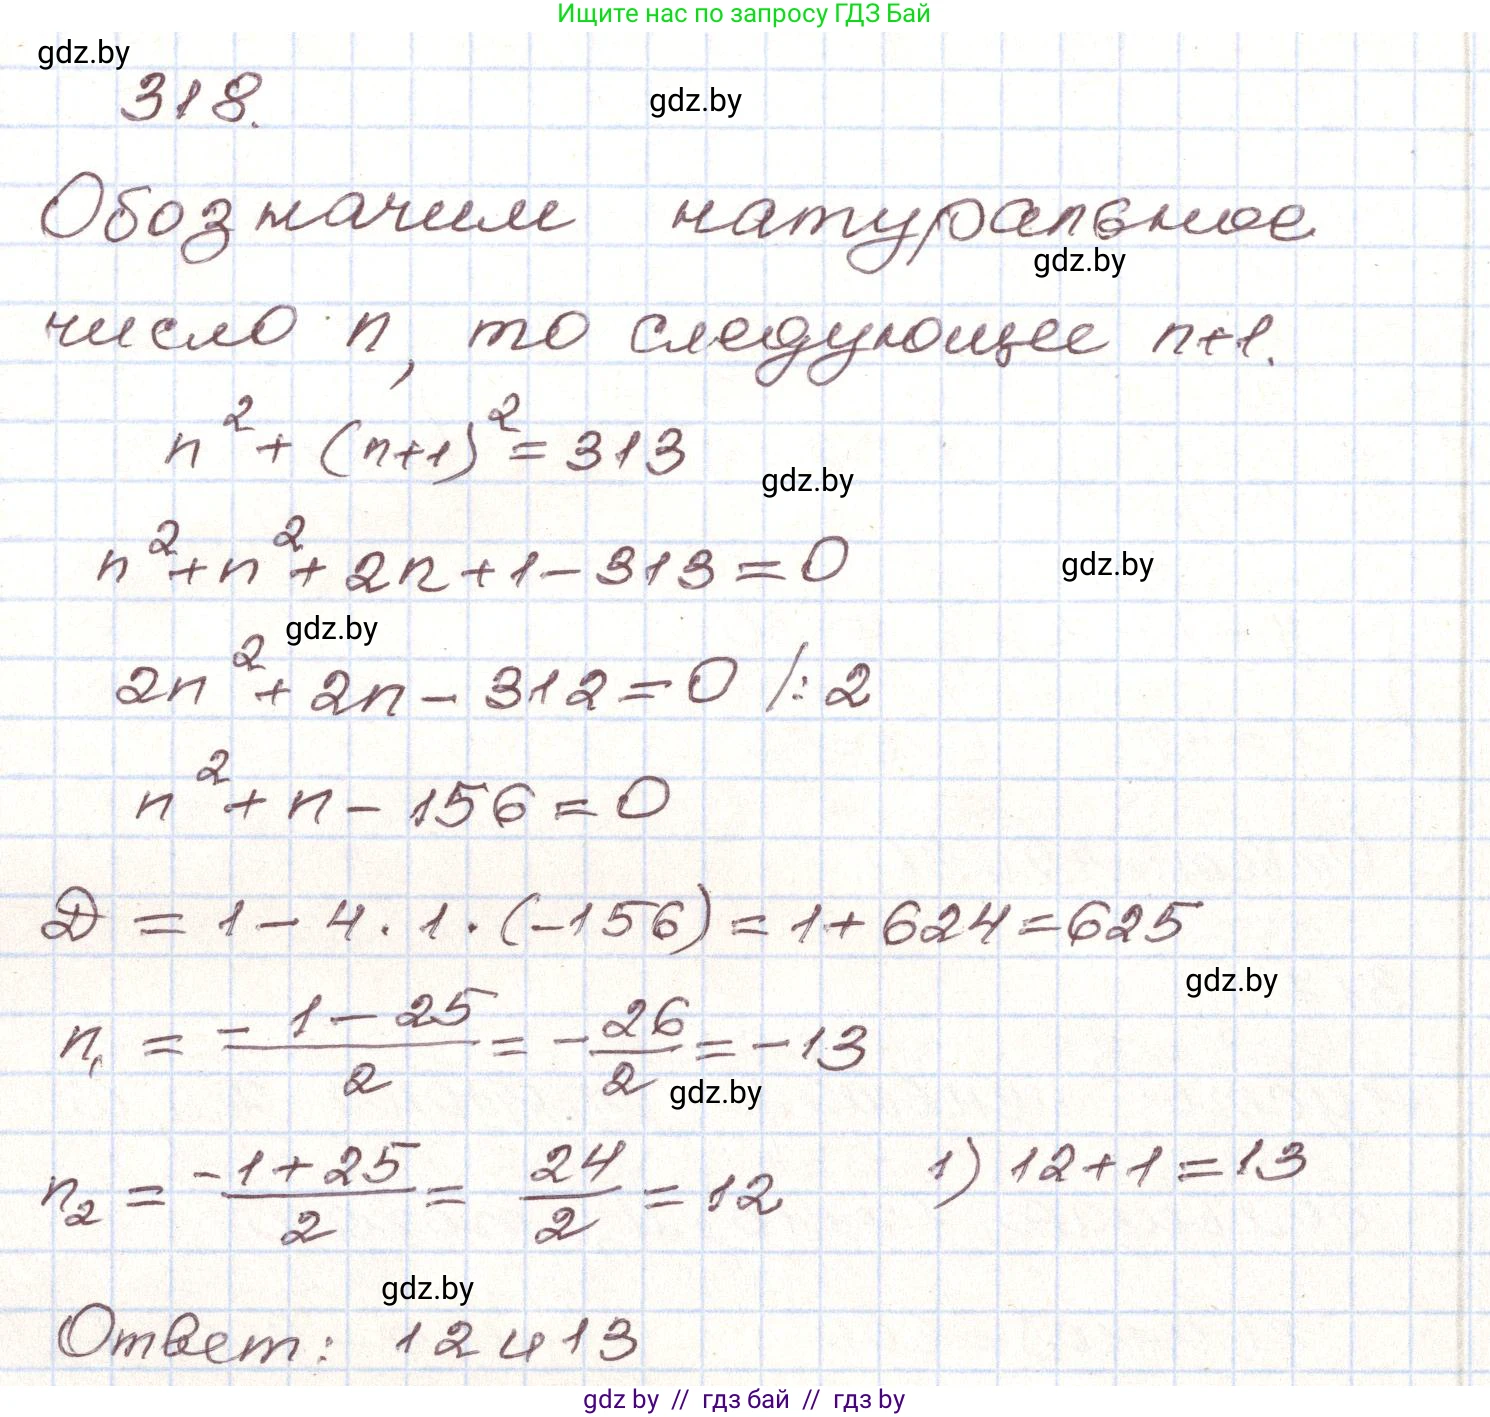 Ищите нас по запросу ГДЗ Бай
gdz.by
318.
gdz.by
Обозначим натуральное
gdz.by
число n, то следующее n+1.
n² + (n+1)² = 313
gdz.by
n² + n² + 2n + 1 - 313 = 0
gdz.by
gdz.by
2n² + 2n - 312 = 0 /:2
n² + n - 156 = 0
D = 1 - 4 · 1 · (-156) = 1 + 624 = 625
gdz.by
n₁ = (-1 - 25)/2 = -26/2 = -13
gdz.by
n₂ = (-1 + 25)/2 = 24/2 = 12 1) 12 + 1 = 13
gdz.by
Ответ: 12 и 13
gdz by // гдз бай // gdz by